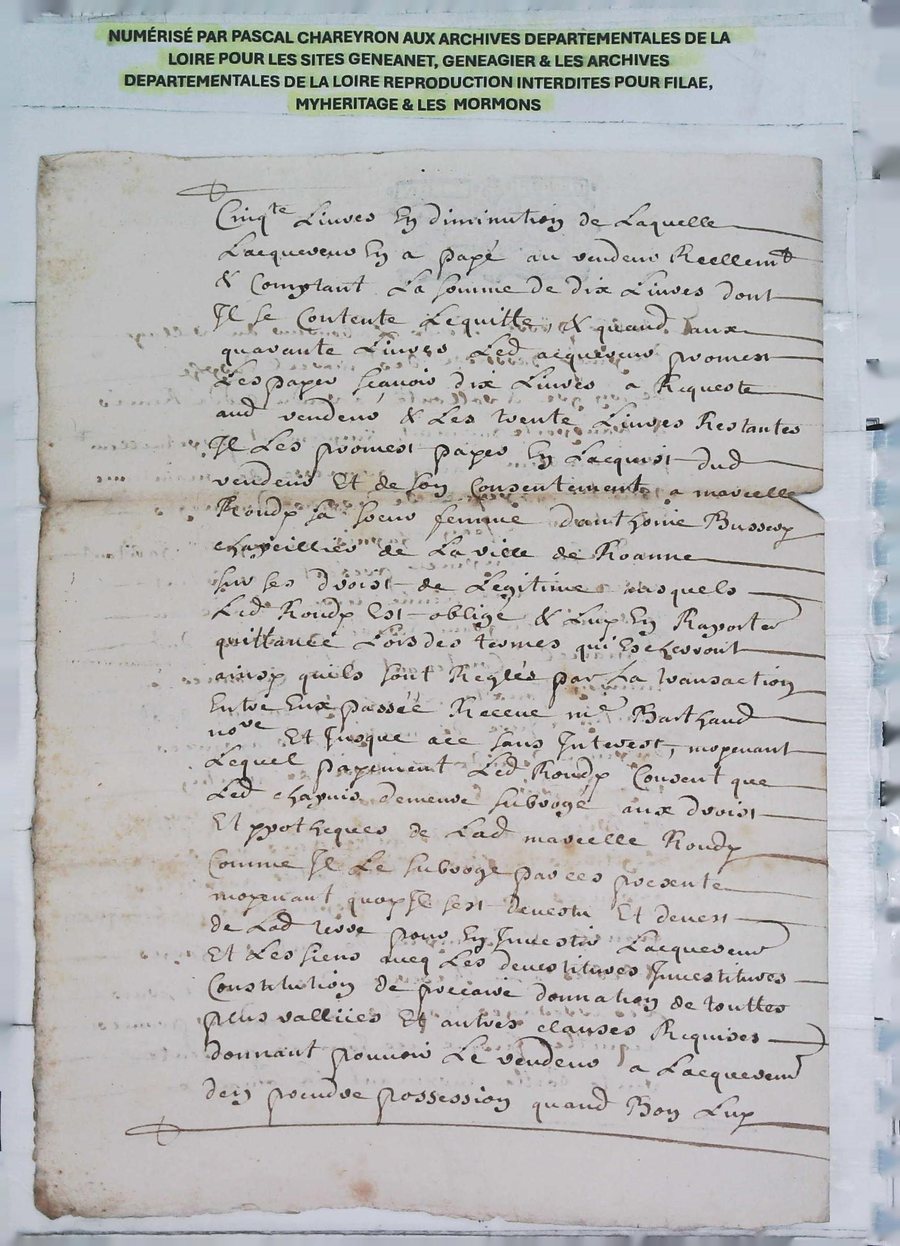 NUMÉRISÉ PAR PASCAL CHAREYRON AUX ARCHIVES DEPARTEMENTALES DE LA
LOIRE POUR LES SITES GENEANET, GENEAGIER & LES ARCHIVES
DEPARTEMENTALES DE LA LOIRE REPRODUCTION INTERDITES POUR FILAE,
MYHERITAGE & LES MORMONS
Cinqte Liures En diminution de Laquelle
Lacquereur En a payé au vendeur Reellemt
& Comptant La somme de dix Liures dont
Il se Contente Lequitte & quand aux
quarante Liures Led acquereur promest
Les payer scauoir dix Liures a Requeste
aud vendeur & Les trente Liures Restantes
Il Les promest payer En Lacquist dud
vendeur Et de son Consentement a marcelle
Rondy sa soeur femme danthoine Bussery
de La ville de Roanne
sur ses droist de Legitime
Led Rondy Est obligé & Luy En Raporter
quittance Lorsdes termes qui Escherront
ainsy quils sont Reglés par La transaction
Entre Eux passéé Receue me Barthaud
nore Et Jusque ace sans Interest, moyenant
Lequel payement Led Rondy Consent que
Led chapuis demeure subrogé aux droist
Et ypotheques de Lad marcelle Rondy
Comme Il Le subroge par ces presente
moyenant quoy Il sest deuestu Et deuest
de Lad terre pour En Inuestir Lacquereur
Et Les siens aueq Les deuestitures Inuestitures
Constitution de precaire donnation de touttes
plus vallües Et autres clauses Requises
donnant pouuoir Le vendeur a Lacquereur
den prendre possession quand Bon Luy